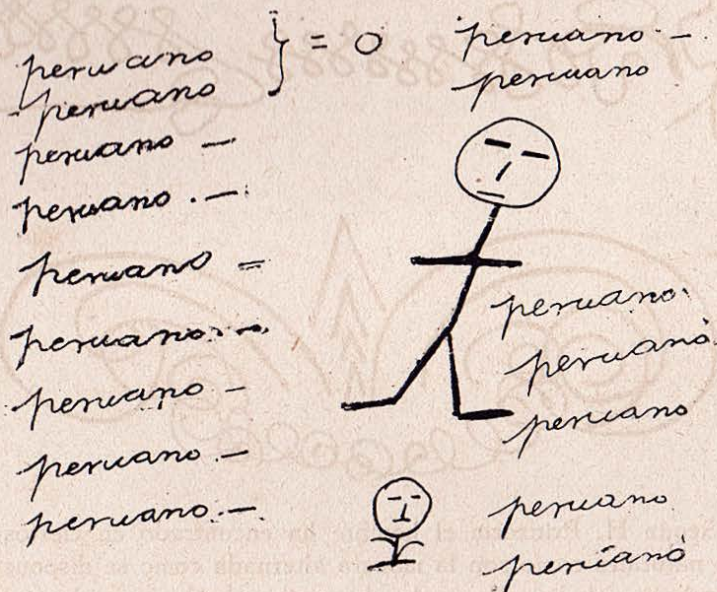 peruano } = 0
peruano
peruano —
peruano . —
peruano =
peruano . —.
peruano -
peruano . —
peruano . —.
peruano . —
peruano
peruano.
peruano.
peruano
peruano
peruano